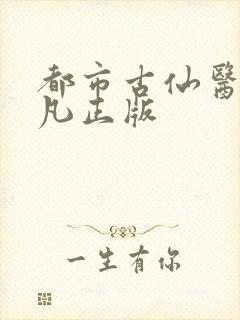 都市古仙醫
凡正版
一生有你